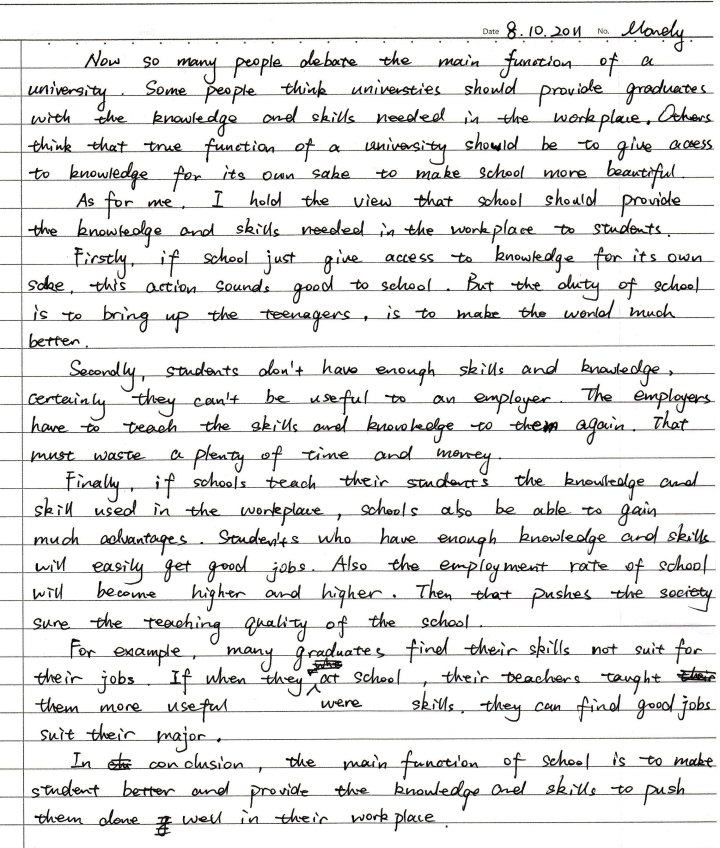 Date 8.10.2011 No. Monely
Now so many people debate the main function of a
university. Some people think universties should provide graduates
with the knowledge and skills needed in the workplace. Others
think that true function of a university should be to give access
to knowledge for its own sake to make school more beautiful.
As for me. I hold the view that school should provide
the knowledge and skills needed in the workplace to students.
Firstly, if school just give access to knowledge for its own
sake, this action sounds good to school. But the duty of school
is to bring up the teenagers, is to make the world much
better.
Secondly, students don't have enough skills and knowledge,
certainly they can't be useful to an employer. The employers
have to teach the skills and knowledge to them again. That
must waste a plenty of time and money.
Finally, if schools teach their students the knowledge and
skill used in the workplace, schools also be able to gain
much advantages. Students who have enough knowledge and skills
will easily get good jobs. Also the employment rate of school
will become higher and higher. Then that pushes the society
sure the teaching quality of the school.
For example, many graduates find their skills not suit for
their jobs. If when they at school, their teachers taught
them more useful were skills. they can find good jobs
suit their major.
In conclusion, the main function of school is to make
student better and provide the knowledge and skills to push
them done well in their workplace.